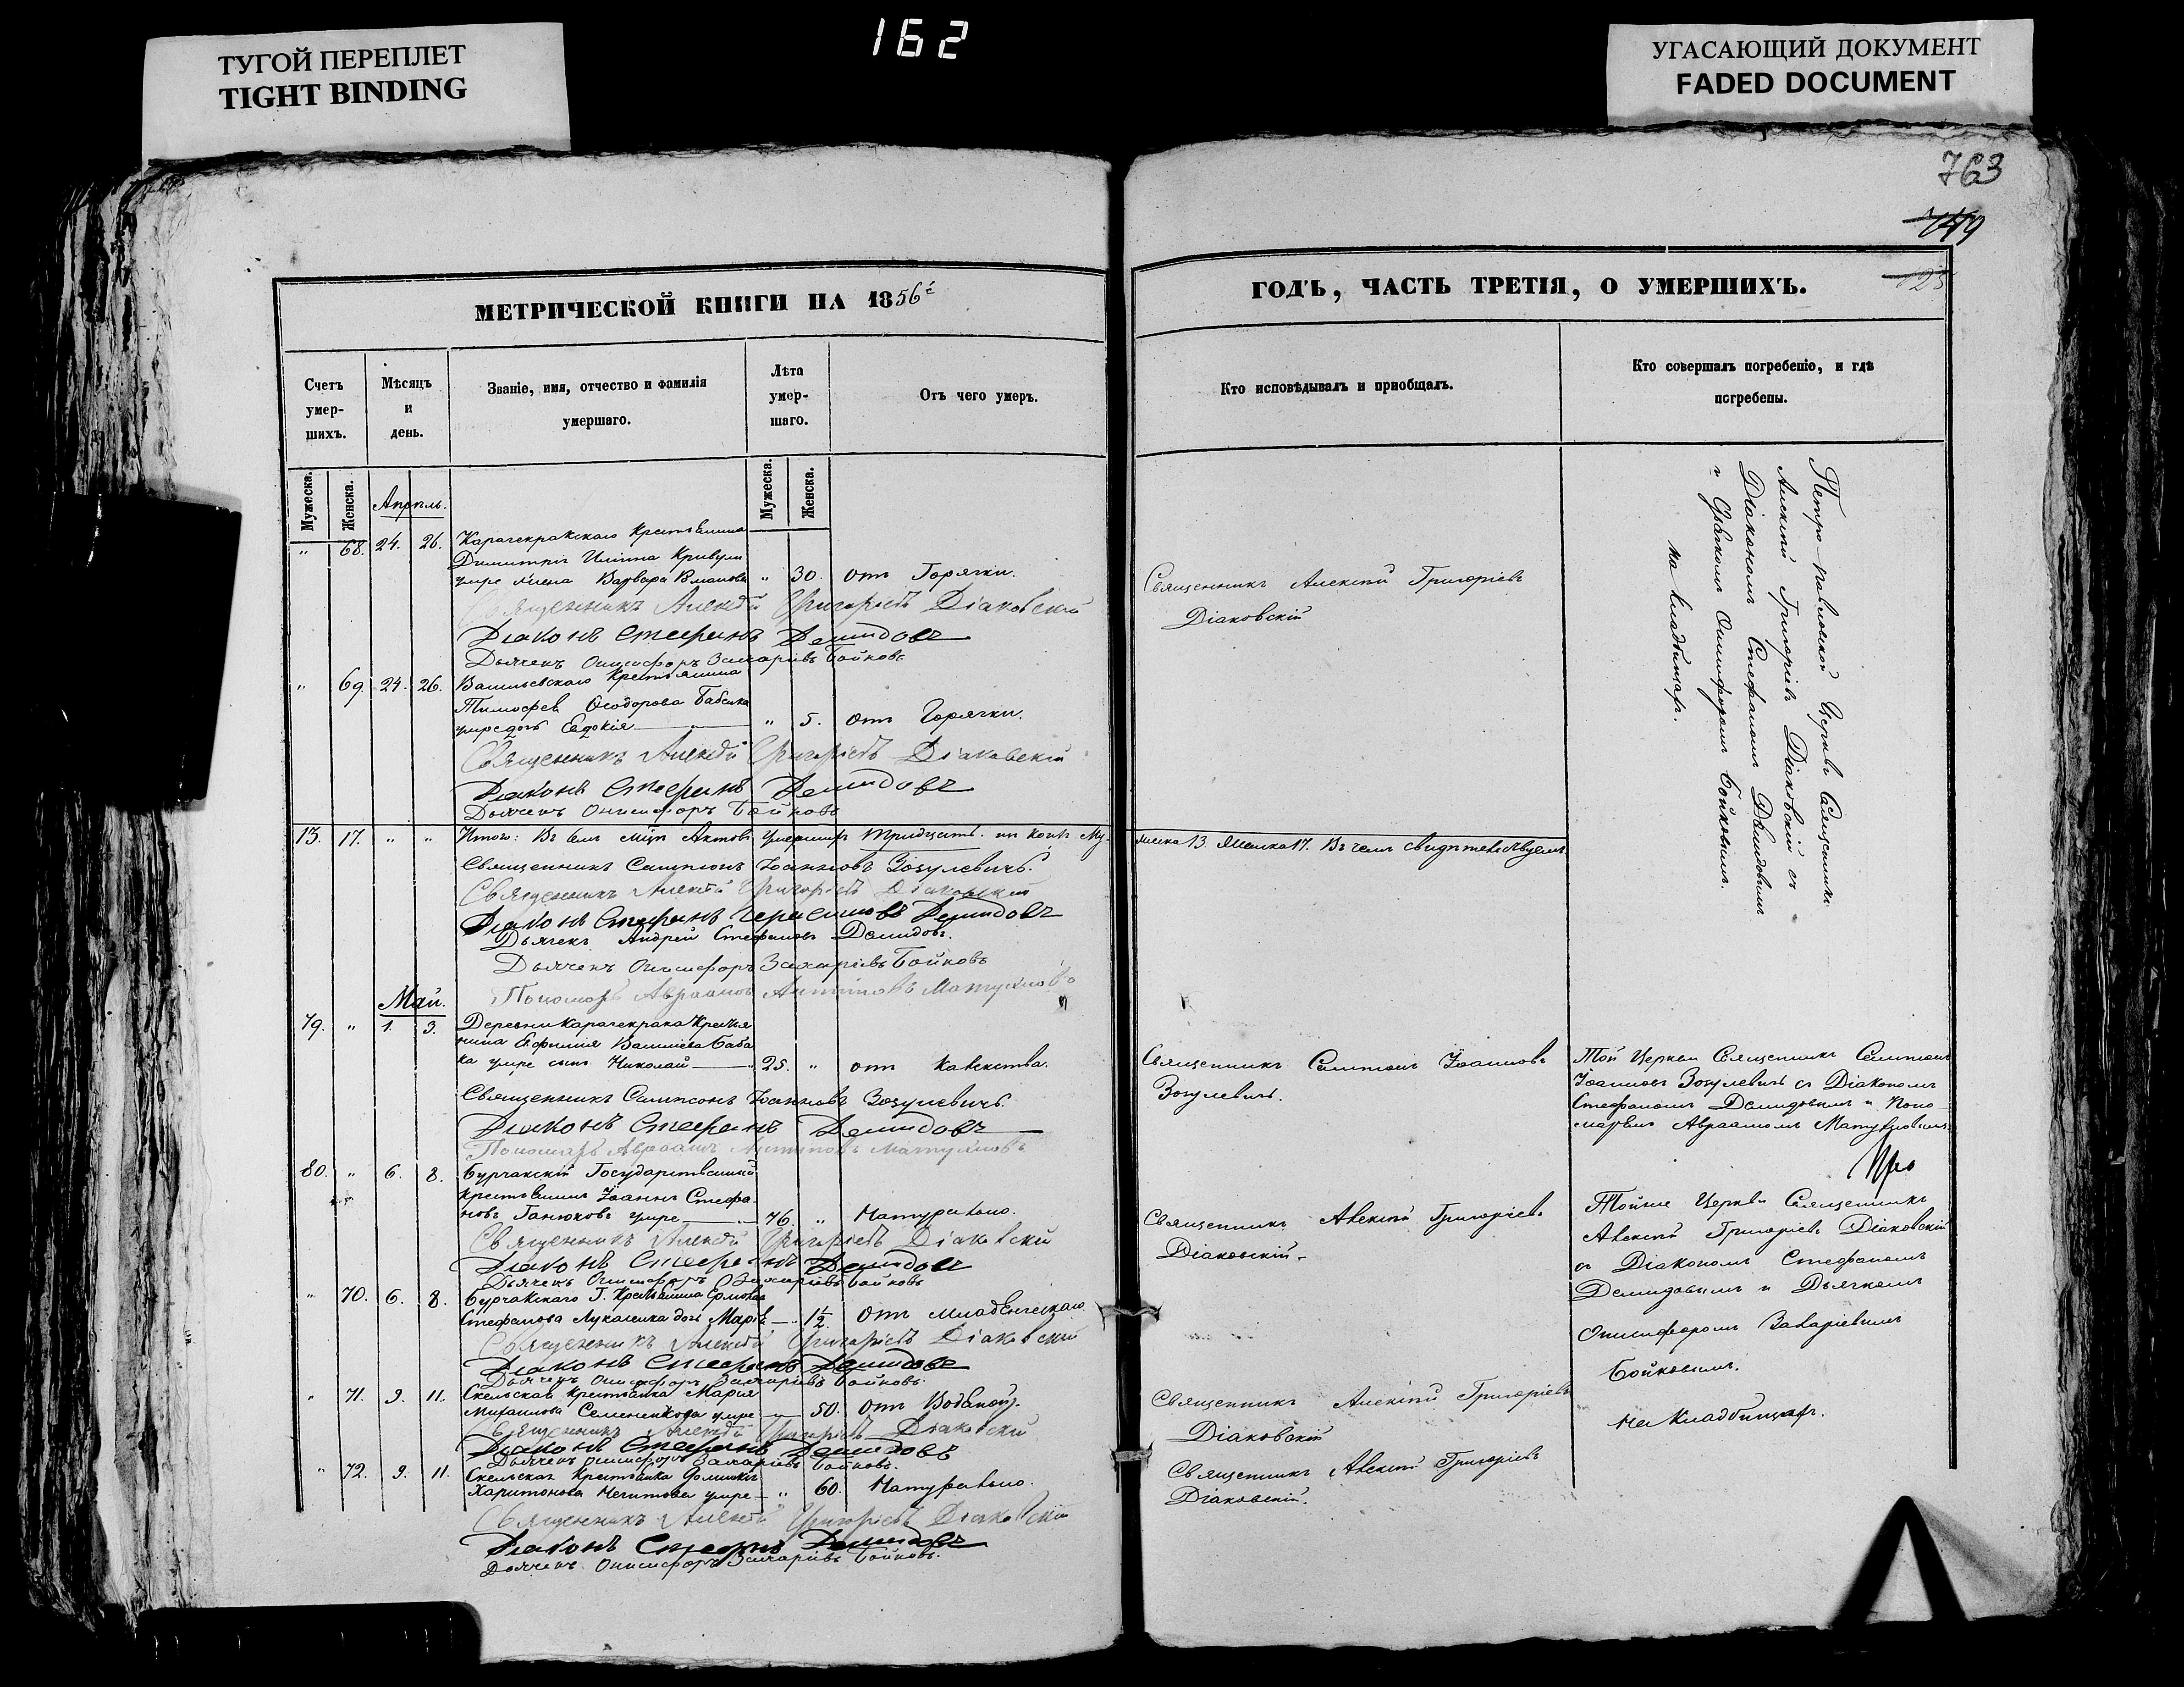 162
ТУГОЙ ПЕРЕПЛЕТ
TIGHT BINDING
УГАСАЮЩИЙ ДОКУМЕНТ
FADED DOCUMENT
763
МЕТРИЧЕСКОЙ КНИГИ НА 1856й
Счетъ умер- шихъ.
Мѣсяцъ и день.
Званіе, имя, отчество и фамилія умершаго.
Лѣта умер- шаго.
Отъ чего умеръ.
Мужеска.
Женска.
Мужеска.
Женска.
Апрѣль.
" 68. 24. 26. Карачекракскаго Крестьянина
Димитрія Ильина Кривули
умре жена Варвара " 30. отъ Горячки.
Священникъ Алексій Григоріевъ Діаковскій
Діаконъ Стефанъ Демидовъ
Дьячекъ Онисифоръ Захаріевъ Бойковъ
" 69. 24. 26. Васильевскаго Крестьянина
Тимофея Ѳеодорова
умре дочь Евдокія " 5. отъ Горячки.
Священникъ Алексій Григоріевъ Діаковскій
Діаконъ Стефанъ Демидовъ
Дьячекъ Онисифоръ Бойковъ
13. 17. " " Итого: Въ семъ м-цѣ Актовъ умершихъ тридцать. изъ коихъ Му-
Священникъ Сампсонъ Іоанновъ Зозулевичъ.
Священникъ Алексій Григоріевъ Діаковскій
Діаконъ Стефанъ Герасимовъ Демидовъ
Дьячекъ Андрей Стефановъ Демидовъ.
Дьячекъ Онисифоръ Захаріевъ Бойковъ
Пономарь Авраамъ Антиповъ
Май.
79. " 1. 3. Деревни Карачекрака Крестья
нина Евфимія Васильева Баба
ка умре сынъ Николай 25. " отъ
Священникъ Сампсонъ Іоанновъ Зозулевичъ.
Діаконъ Стефанъ Демидовъ
Пономарь Авраамъ Антиповъ
80. " 6. 8. Бурчакскій Государственный
крестьянинъ Іоаннъ Стефа-
новъ Ганюковъ умре 76. " Натурально.
Священникъ Алексій Григоріевъ Діаковскій
Діаконъ Стефанъ Демидовъ
Дьячекъ Онисифоръ Захаріевъ Бойковъ
" 70. 6. 8. Бурчакскаго Г. Крестьянина
Стефанова дочь Марія 1½. Отъ младенческаго.
Священникъ Алексій Григоріевъ Діаковскій
Діаконъ Стефанъ Демидовъ
Дьячекъ Онисифоръ Захаріевъ Бойковъ.
" 71. 9. 11. Скельская крестьянка Марія
Михаилова Семененкова умре 50. Отъ Водяной.
Священникъ Алексій Григоріевъ Діаковскій
Діаконъ Стефанъ Демидовъ
Дьячекъ Онисифоръ Захаріевъ Бойковъ.
" 72. 9. 11. Скельская Крестьянка
Харитонова умре " 60. Натурально.
Священникъ Алексій Григоріевъ Діаковскій
Діаконъ Стефанъ Демидовъ
Дьячекъ Онисифоръ Захаріевъ Бойковъ.
ГОДЪ, ЧАСТЬ ТРЕТІЯ, О УМЕРШИХЪ.
Кто исповѣдывалъ и пріобщалъ.
Кто совершалъ погребеніе, и гдѣ погребены.
Священникъ Алексій Григоріевъ
Діаковскій
Петро-Павловской Церкви Священникъ
Алексій Григоріевъ Діаковскій съ
Діакономъ Стефаномъ Демидовымъ
и Дьячкомъ Онисифоромъ Бойковымъ.
На Кладбищахъ.
жеска 13. Женска 17. Въ чемъ свидѣтельствуемъ.
Священникъ Сампсонъ Іоанновъ
Зозулевичъ.
Той Церкви Священникъ Сампсонъ
Іоанновъ Зозулевичъ съ Діакономъ
Стефаномъ Демидовымъ и Поно-
маремъ Авраамомъ
Священникъ Алексій Григоріевъ
Діаковскій.
Тойже Церкви Священникъ
Алексій Григоріевъ Діаковскій
съ Діакономъ Стефаномъ
Демидовымъ и Дьячкомъ
Онисифоромъ Захаріевымъ
Бойковымъ.
На Кладбищахъ.
Священникъ Алексій Григоріевъ
Діаковскій
Священникъ Алексій Григоріевъ
Діаковскій.